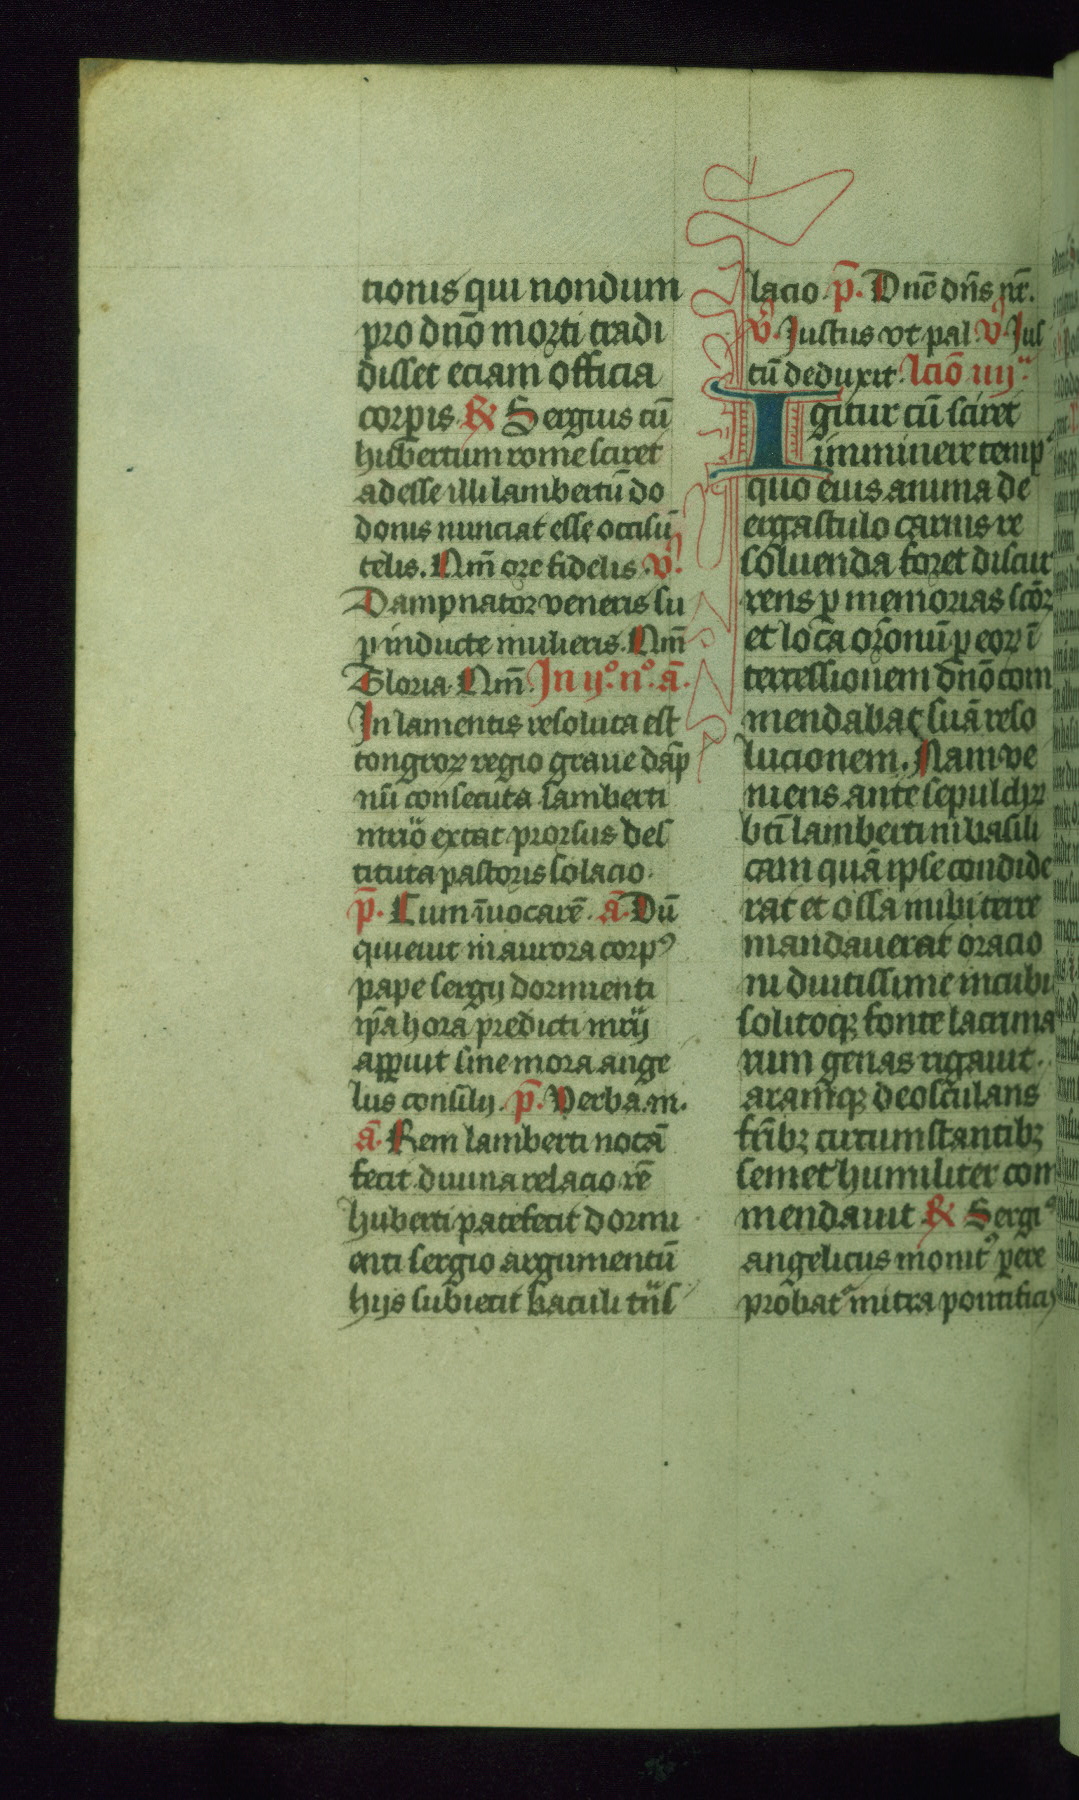 tionis qui nondum
pro dn̄o morti tradi
disset eciam officia
corpis. R Sergius cū
hubertum rome sciret
adesse illi lambertū do
donis nunciat esse occisū
telis. Nm̄ ore fidelis. V.
Dampnator veneris su
p inducte mulieris. Nm̄
Gloria. Nm̄. In ijº. nº. ā.
In lamentis resoluta est
tongroꝝ regio graue dāp
nū consecuta lamberti
mrio extat prorsus des
tituta pastoris solacio.
p̄. Cum īuocarē. ā. Dū
quieuit in aurora corpꝰ
pape sergij dormienti
ip̄a hora predicti mrij
appuit sine mora ange
lus consilij. p̄. Verba. m.
ā. Rem lamberti notā
fecit diuina relacio rē
huberti patefecit dormi
enti sergio argumentū
hijs subiecit baculi
lacio. p̄. Dn̄e dn̄s nr̄.
V. Iustus vt pal. V. Ius
tū deduxit. lcio iiij.
Igitur cū sciret
imminere tempꝰ
quo eius anima de
ergastulo carnis re
soluenda foret discur
rens p memorias scōꝝ
et loca orōnū p eoꝝ ī
tercessionem dn̄o com
mendabat suā reso
lucionem. Nam ve
niens ante sepulchꝝ
bti lamberti in basili
cam quā ipse condide
rat et ossa inibi terre
mandauerat oracio
ni diutissime incubu
solitoqꝫ fonte lacrima
rum genas rigauit.
aramqꝫ deosculans
fr̄ibꝫ circumstantibꝫ
semet humiliter com
mendauit R Sergiꝰ
angelicus monitꝰ pere
probat mitra pontificij